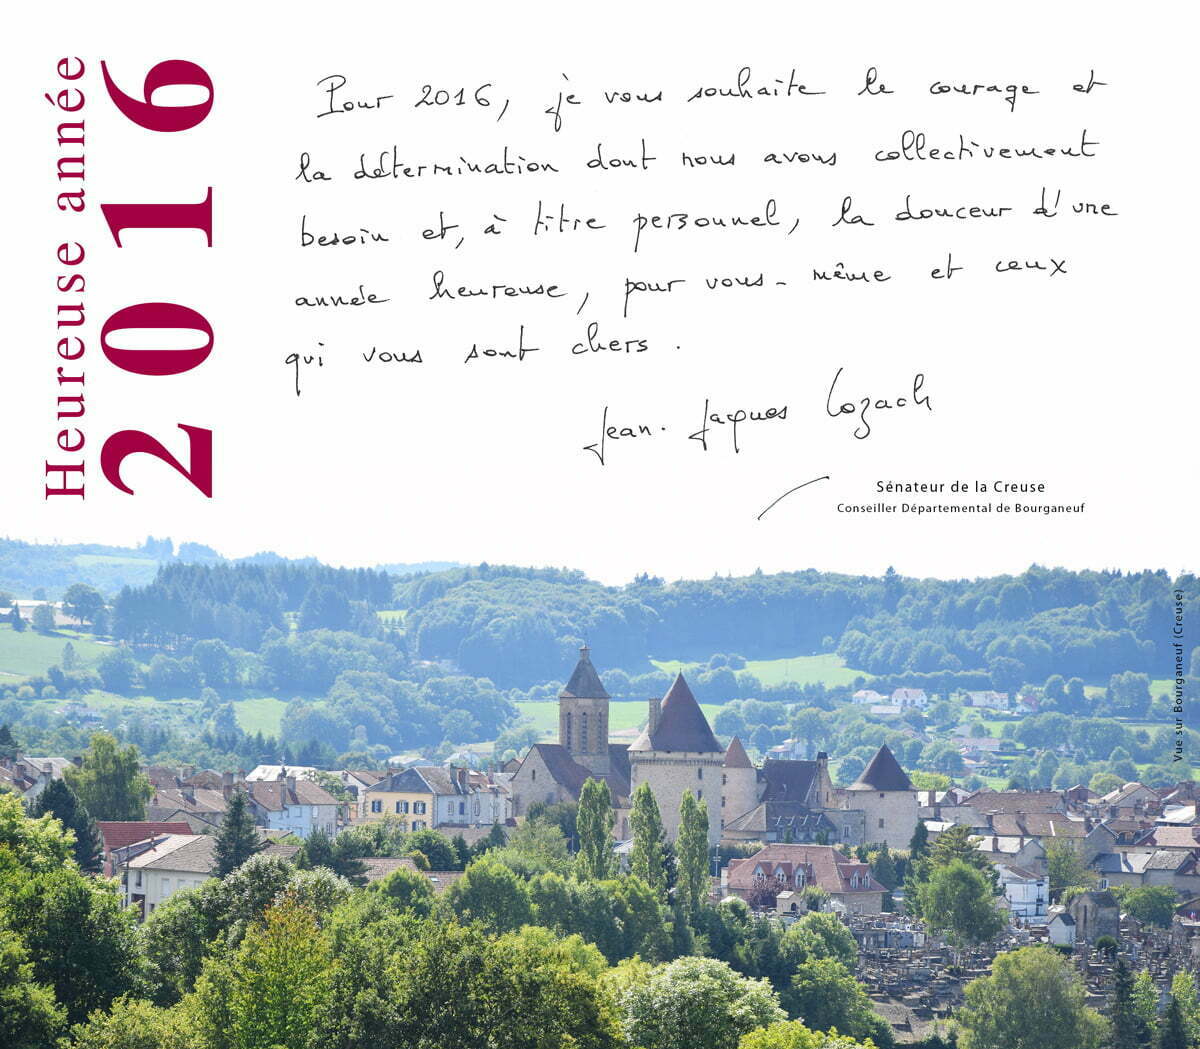 Heureuse année
2016
Pour 2016, je vous souhaite le courage et
la détermination dont nous avons collectivement
besoin et, à titre personnel, la douceur d'une
année heureuse, pour vous-même et ceux
qui vous sont chers.
Jean-Jacques Lozach
Sénateur de la Creuse
Conseiller Départemental de Bourganeuf
Vue sur Bourganeuf (Creuse)